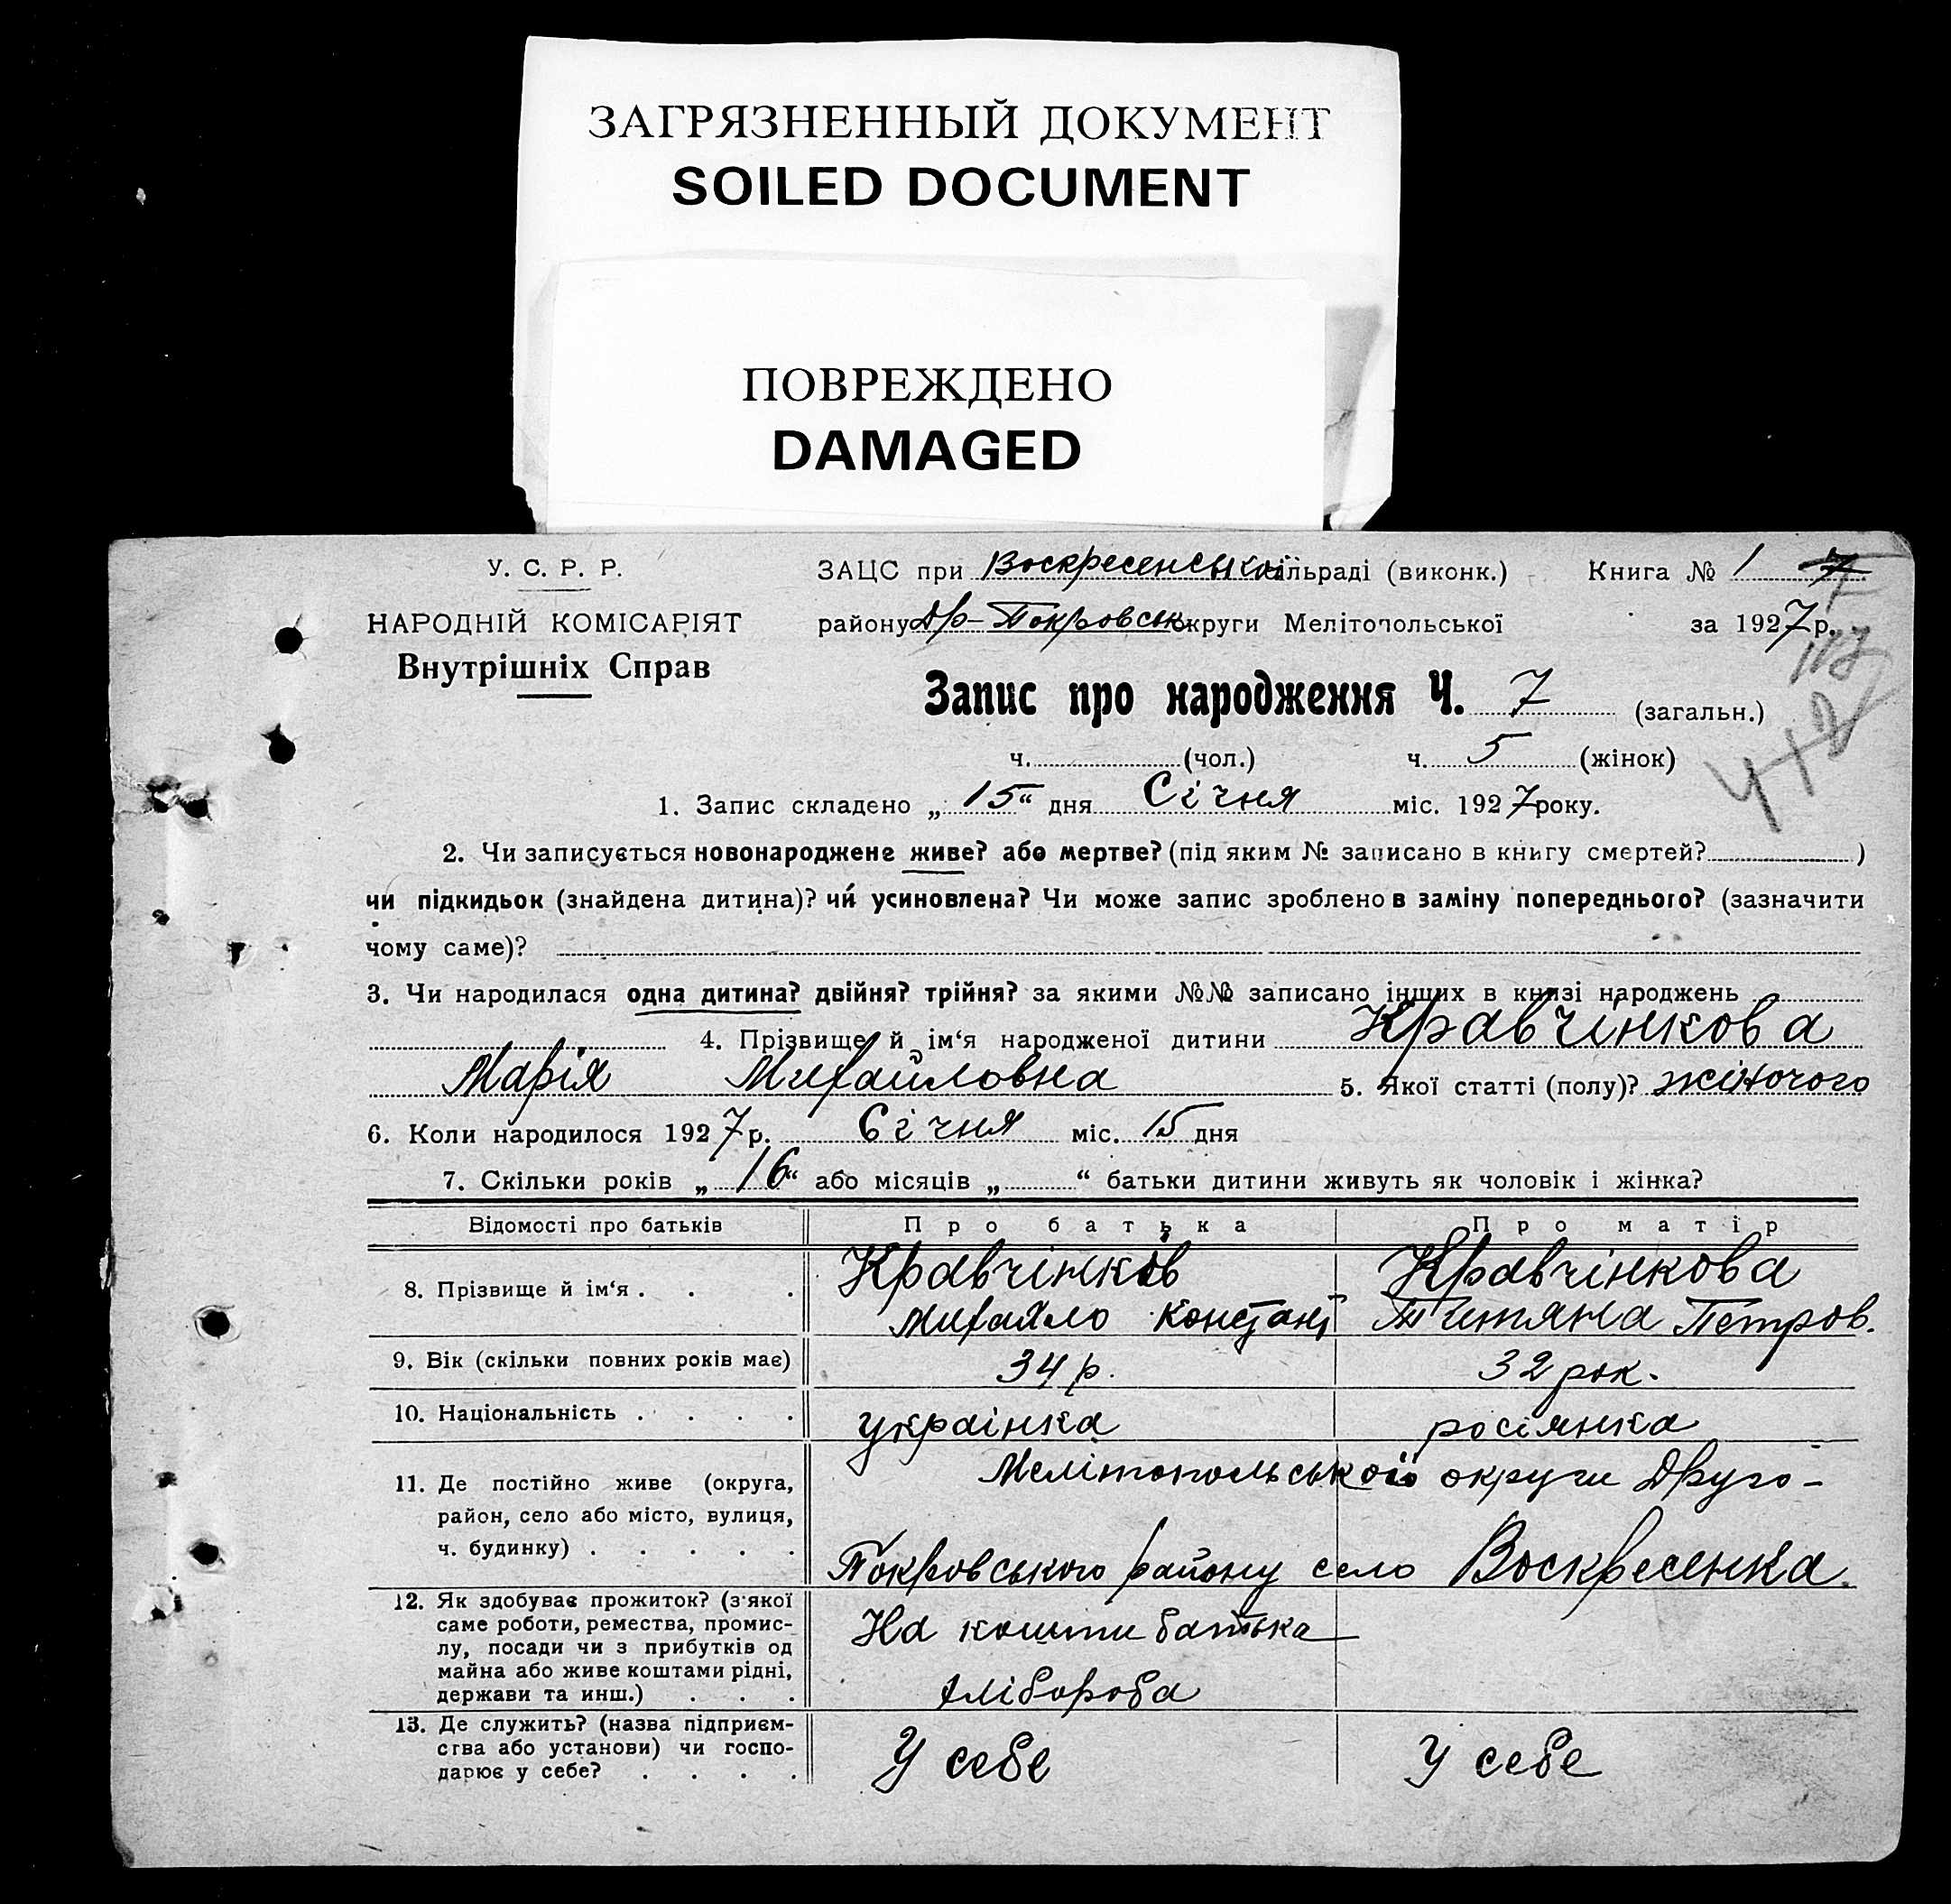 ЗАГРЯЗНЕННЫЙ ДОКУМЕНТ
SOILED DOCUMENT
ПОВРЕЖДЕНО
DAMAGED
У. С. Р. Р.
НАРОДНІЙ КОМІСАРІЯТ
Внутрішніх Справ
ЗАЦС при Воскресенській сільраді (виконк.) Книга № 1 7
району Др-Покровськ округи Мелітопольської за 1927 р.
Запис про народження Ч. 7 (загальн.)
ч. (чол.) ч. 5 (жінок)
1. Запис складено „ 15 “ дня Січня міс. 1927 року.
2. Чи записується новонароджене живе? або мертве? (під яким № записано в книгу смертей? )
чи підкидьок (знайдена дитина)? чи усиновлена? Чи може запис зроблено в заміну попереднього? (зазначити
чому саме)?
3. Чи народилася одна дитина? двійня? трійня? за якими №№ записано інших в книзі народжень
4. Прізвище й ім‘я народженої дитини Кравчінкова
Марія Михайловна 5. Якої статті (полу)? жіночого
6. Коли народилося 1927 р. Січня міс. 15 дня
7. Скільки років „ 16 “ або місяців „ “ батьки дитини живуть як чоловік і жінка?
Відомості про батьків Про батька Про матір
8. Прізвище й ім‘я . . . Кравчінків Кравчінкова
Михайло Констант Титяна Петров.
9. Вік (скільки повних років має) 34 р. 32 рок.
10. Національність . . . . українка росіянка
11. Де постійно живе (округа, Мелітопольської округи Друго-
район, село або місто, вулиця,
ч. будинку) . . . . . Покровського району село Воскресенка.
12. Як здобуває прожиток? (з‘якої
саме роботи, ремества, промис- На кошти батька
лу, посади чи з прибутків од
майна або живе коштами рідні,
держави та инш.) . . . хлібороба
13. Де служить? (назва підприєм-
ства або установи) чи госпо- У себе У себе
дарює у себе? . . . .